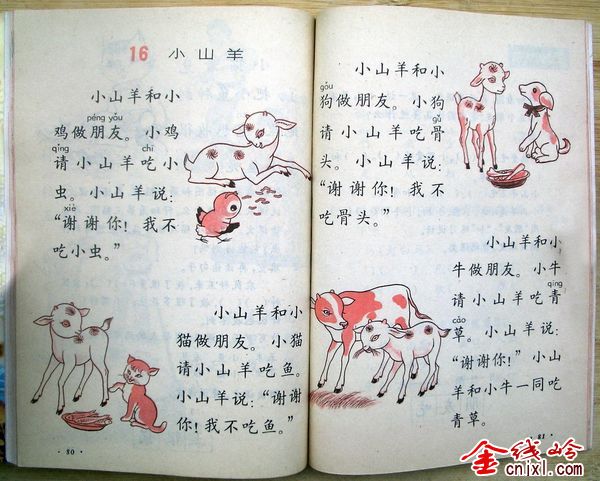 16 小山羊
小山羊和小
péng yǒu
鸡做朋友。小鸡
qǐng chī
请小山羊吃小
虫。小山羊说:
xiè
“谢谢你!我不
吃小虫。”
小山羊和小
猫做朋友。小猫
请小山羊吃鱼。
小山羊说:“谢谢
你!我不吃鱼。”
·80·
小山羊和小
gǒu
狗做朋友。小狗
gǔ
请小山羊吃骨
头。小山羊说:
“谢谢你!我不
吃骨头。”
小山羊和小
牛做朋友。小牛
qīng
请小山羊吃青
cǎo
草。小山羊说:
“谢谢你!”小山
羊和小牛一同吃
青草。
·81·
金线岭
cnjxl.com